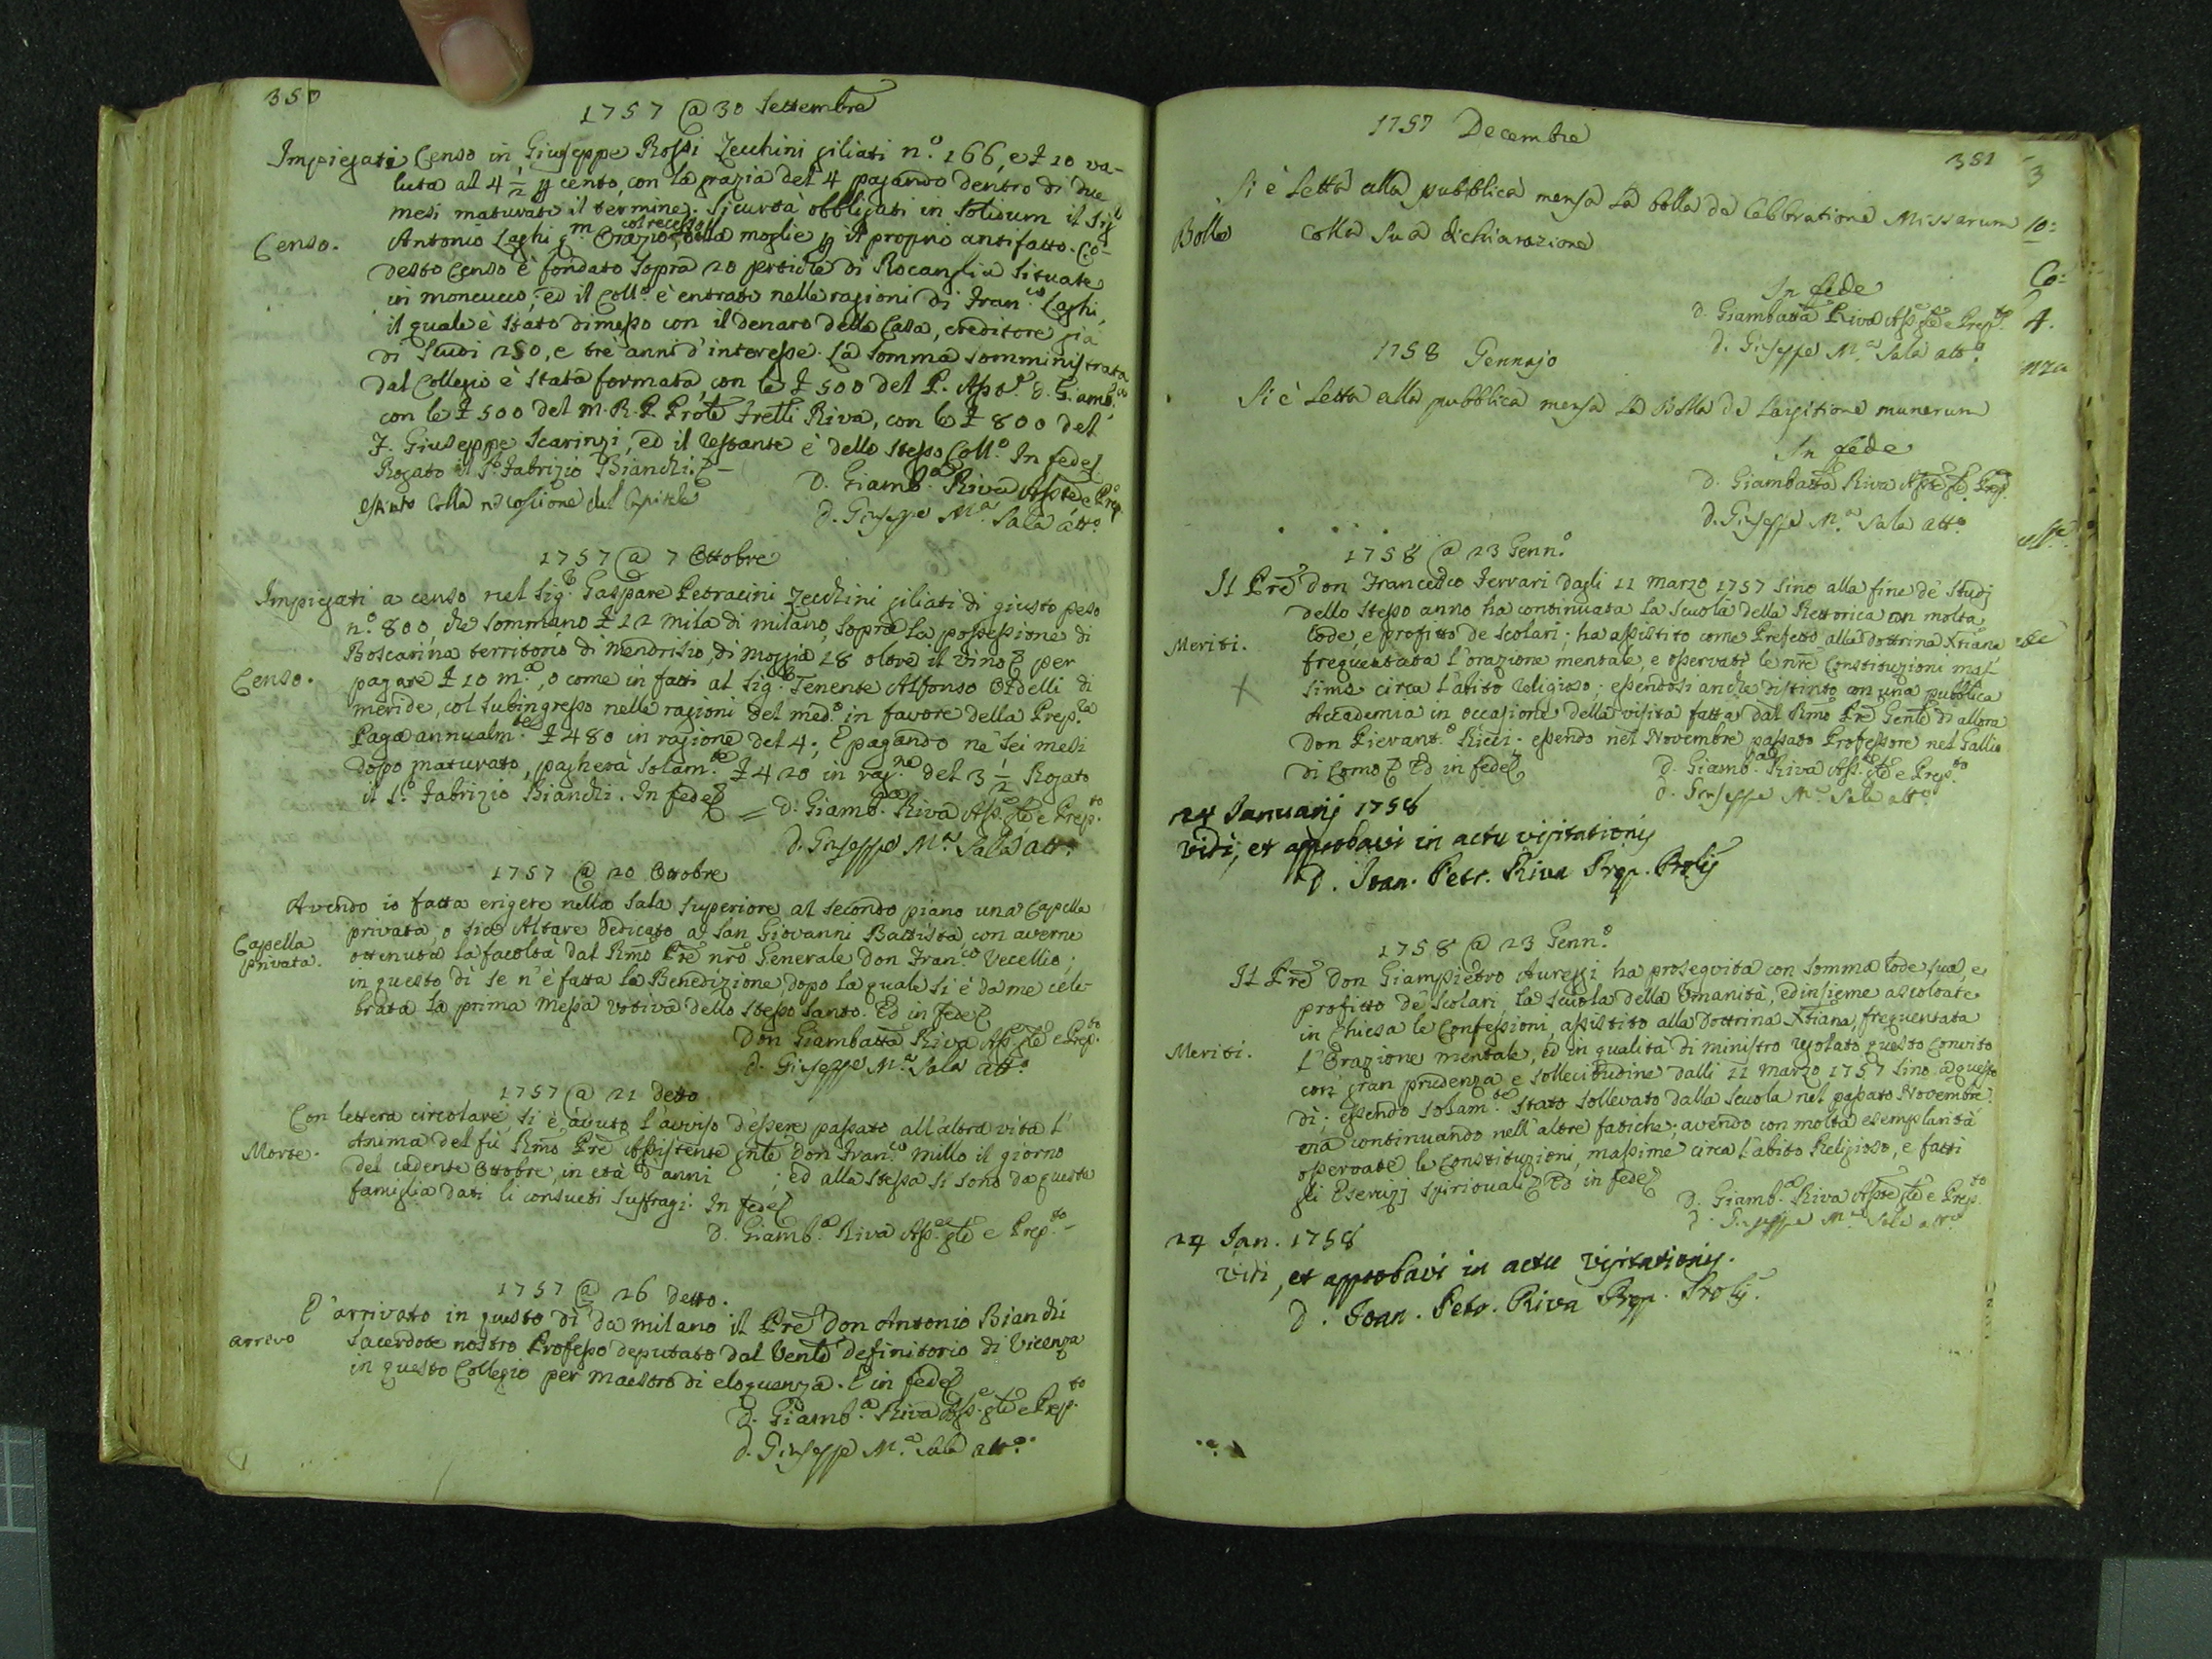 350
1757 @ 30 Settembre
Impiegati Censo in Giuseppe Rossi Zecchini giliati n.º 166, e £ 10 va-
luta al 4 1/2 p cento, con la grazia del 4 pagando dentro di due
mesi maturato il termine. Sicurtà obbligati in solidum il Sig.r
col recesso
Censo. Antonio Laghi q.m Orazio, della moglie p il proprio antifatto. Co-
desto Censo è fondato sopra 20 pertiche di Roncaglia situate
in moncucco; ed il Coll.º è entrato nelle ragioni di Fran.co Laghi,
il quale è stato dimesso con il denaro della Casa, creditore già
di Scudi 250, e trè anni d'interesse. La somma somministrata
dal Collegio è stata formata con le £ 500 del P. Ass.e D. Giamb.a
con le £ 500 del M. R. P. Prole Frelli Riva, con le £ 800 del
F. Giuseppe Scaringi, ed il restante è dello stesso Coll.º In fede
Rogato il S.r Fabrizio Bianchi.
D. Giamb.a Riva Ass.te e Prep.
estinto colla riscossione del Capitale
D. Giuseppe M.a Sala att.º
1757 @ 7 Ottobre
Impiegati a censo nel Sig.r Gaspare Petracini Zecchini giliati di giusto peso
n.º 800, che sommano £ 12 mila di milano, sopra la possessione di
Boscarina territorio di Mendrisio, di moggia 28 oltre il vino per
Censo. pagare £ 10 m.a, o come in fatti al Sig.r Tenente Alfonso Oldelli di
meride, col subingresso nelle ragioni del med.º in favore della Prep.ta
Paga annualm.te £ 480 in ragione del 4; E pagando ne' sei mesi
dopo maturato, pagherà solam.te £ 420 in rag.ne del 3 1/2 Rogato
il S.r Fabrizio Bianchi. In fede = D. Giamb.a Riva Ass.e gle e Prep.to
D. Giuseppe M.a Sala att.º
1757 @ 20 Ottobre
Avendo io fatta erigere nella Sala superiore al secondo piano una Capella
Capella privata. privata, o sia Altare dedicato a San Giovanni Battista, con averne
ottenuta la facoltà dal Rmo Pre nro Generale Don Fran.co Vecellio;
in questo dì se n'è fatta la Benedizione, dopo la quale si è da me cele-
brata la prima Messa votiva dello stesso Santo. Ed in fede
Don Giambatta Riva Ass.e gle e Prep.to
D. Giuseppe M.a Sala att.º
1757 @ 21 detto
Con lettera circolare si è avuto l'avviso d'essere passato all'altra vita l'
Morte. Anima del fù Rmo Pre Assistente gnle Don Fran.co Millo il giorno
del cadente Ottobre, in età d'anni ; ed alla stessa si sono da questa
famiglia dati li consueti suffragi. In fede
D. Giamb.a Riva Ass.e gle e Prep.to
1757 @ 26 detto.
E' arrivato in questo dì da milano il Pre Don Antonio Bianchi
arrivo Sacerdote nostro Professo deputato dal Vente Definitorio di Vicenza
in questo Collegio per Maestro di eloquenza. E in fede
D. Giamb.a Riva Ass.e gle e Prep.to
D. Giuseppe M.a Sala att.º
1757 Decembre
351
Si è Letta alla pubblica mensa La bolla de Celebratione Missarum
Bolla colla Sua dichiarazione
In fede
D. Giambatta Riva Ass.e gle e Prep.to
D. Giuseppe M.a Sala att.º
1758 Gennajo
Si è Letta alla pubblica mensa La Bolla de Largitione munerum
In fede
D. Giambatta Riva Ass.te gle Prep.
D. Giuseppe M.a Sala att.º
1758 @ 23 Genn.º
Il Pre don Francesco Ferrari dagli 11 marzo 1757 sino alla fine de' Studj
dello stesso anno ha continuata la scuola della Rettorica con molta
Meriti. lode, e profitto de' scolari; ha assistito come Prefetto alla dottrina Xtiana
frequentata l'orazione mentale, e osservate le nre Constituzioni mas-
sime circa l'abito religioso; essendosi anche distinto con una pubblica
Accademia in occasione della visita fatta dal Rmo Pre Genle di allora
Don Pierant.º Ricci. essendo nel Novembre passato Professore nel Gallio
di Como. Ed in fede D. Giamb.a Riva Ass.e gle e Prep.to
D. Giuseppe M.a Sala att.º
24 Januarij 1758
Vidi, et approbavi in actu visitationis
D. Joan. Petr. Riva Prep. Prolis
1758 @ 23 Genn.º
Il Pre Don Giampietro Aureggi ha proseguita con somma lode sua, e
profitto de' scolari la scuola della Umanità, ed insieme ascoltate
in Chiesa le Confessioni, assistito alla Dottrina Xtiana, frequentata
Meriti. l'Orazione mentale, ed in qualità di ministro regolato questo Convito
con gran prudenza e sollecitudine dalli 11 marzo 1757 sino a questo
dì; essendo solam.te stato sollevato dalla scuola nel passato Novembre.
ma continuando nell'altre fatiche; avendo con molta esemplarità
osservate le Constituzioni, massime circa l'abito Religioso, e fatti
gli Esercizj spirituali. Ed in fede
D. Giamb.a Riva Ass.te gle e Prep.to
D. Giuseppe M.a Sala att.º
24 Jan. 1758
Vidi, et approbavi in actu visitationis.
D. Joan. Petr. Riva Prep. Prolis.